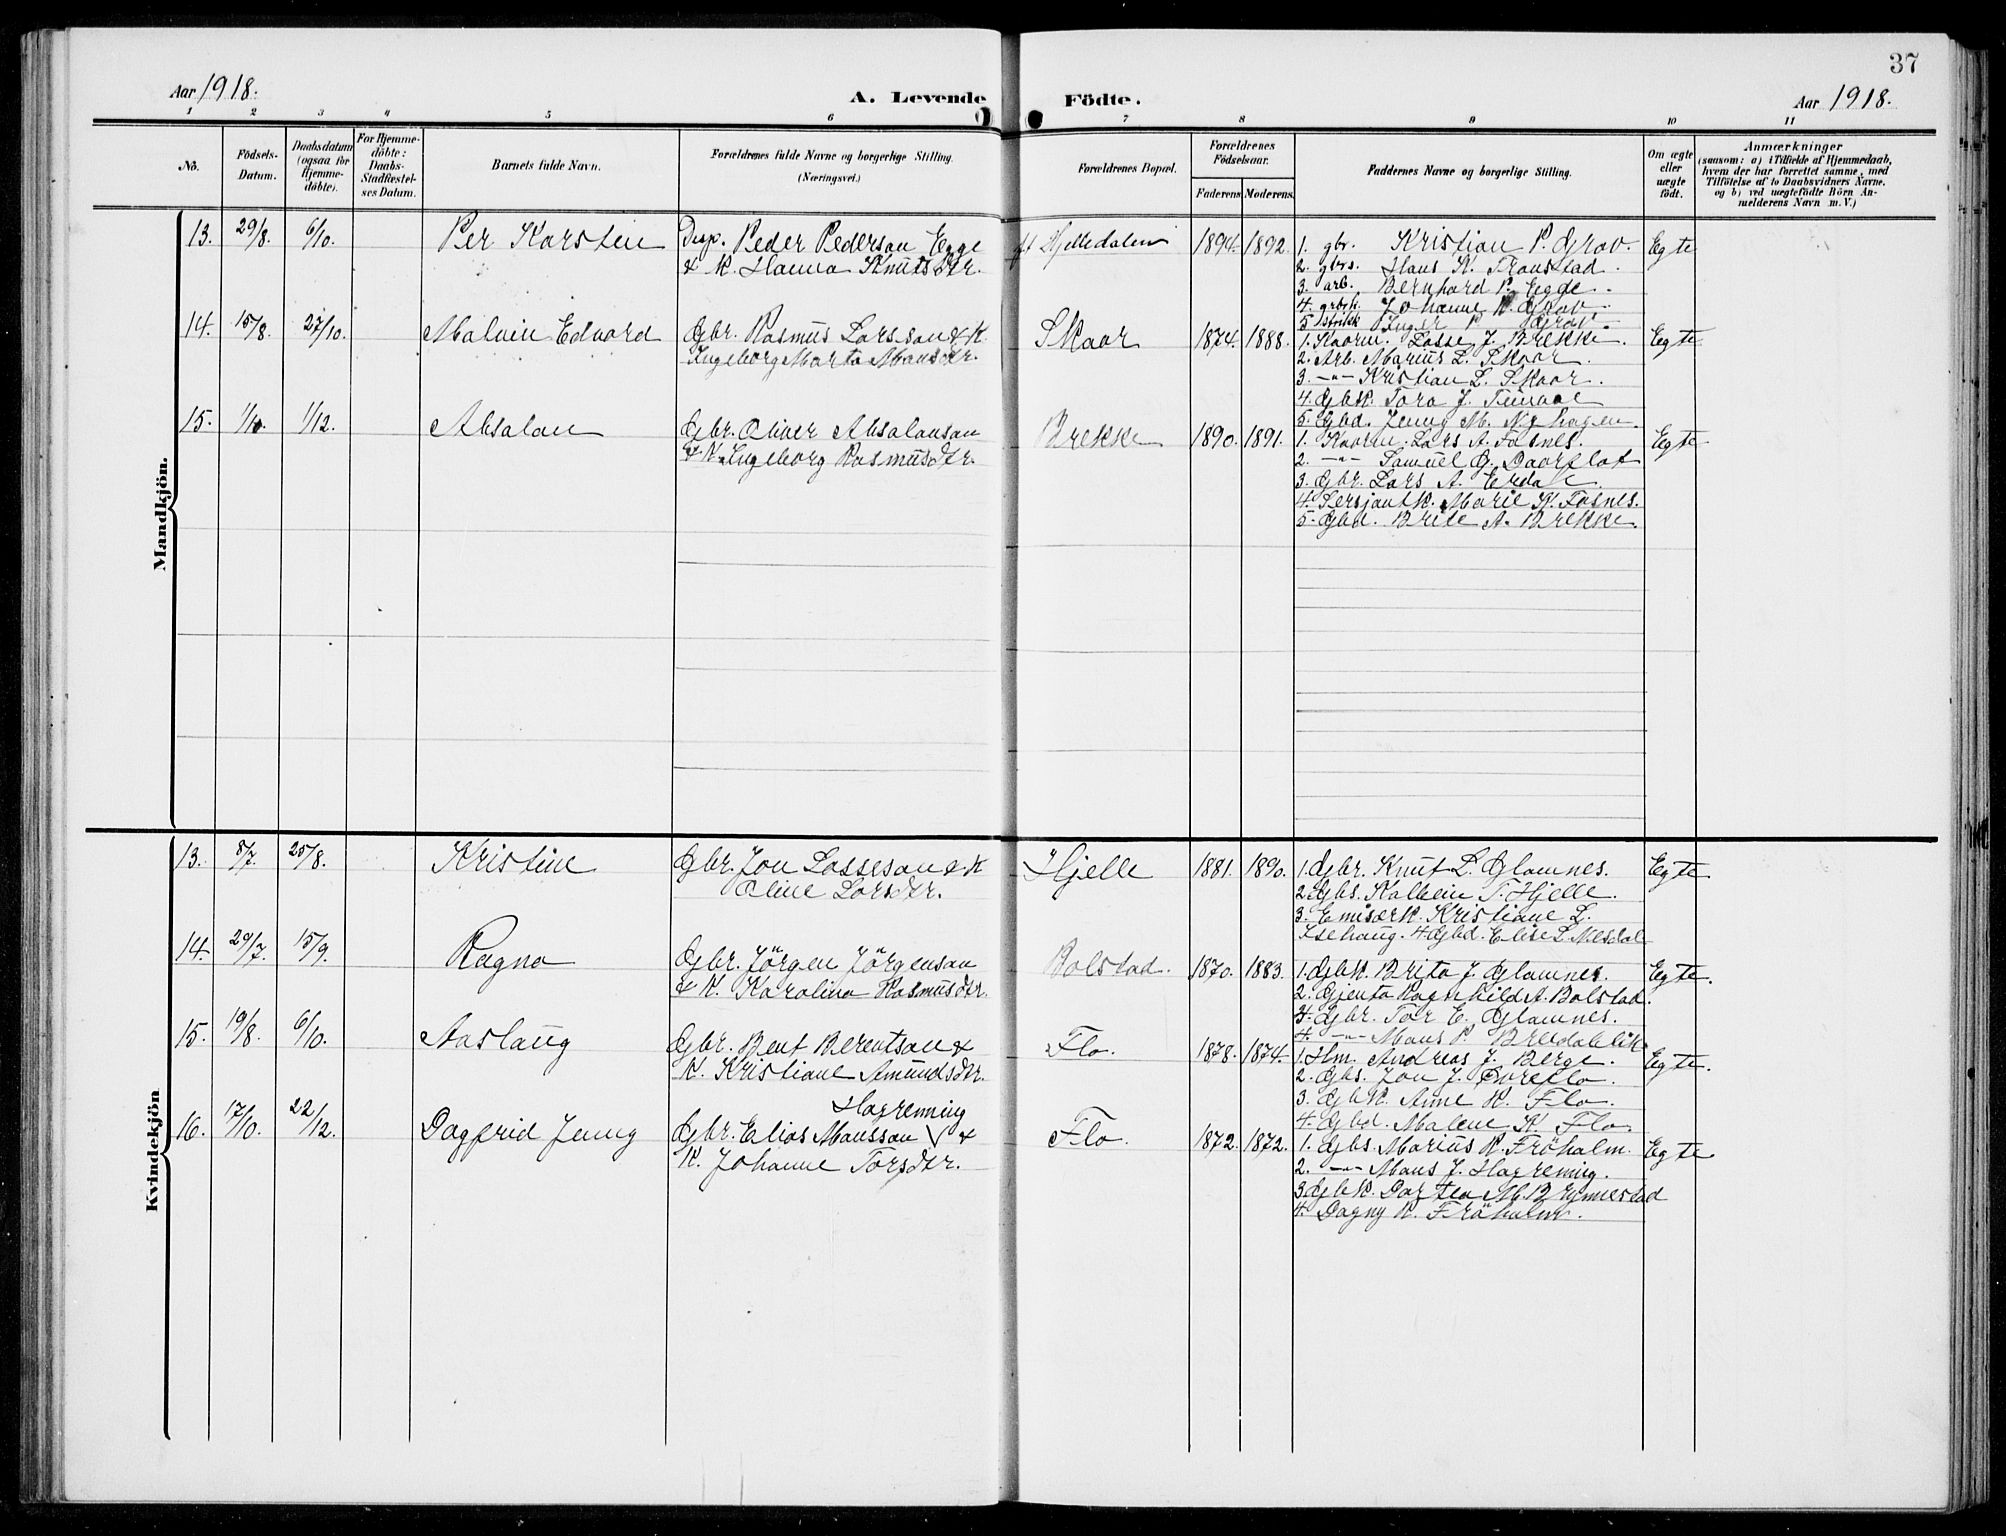 37
Aar 1918.
A. Levende Födte.
Aar 1918.
1 2 3 4 5 6 7 8 9 10 11
No.
Födsels-Datum.
Daabsdatum (ogsaa for Hjemmedöbte).
For Hjemmedöbte: Daabs-Stadfæstelses Datum.
Barnets fulde Navn.
Forældrenes fulde Navne og borgerlige Stilling.
(Næringsvei.)
Forældrenes Bopæl.
Forældrenes Födselsaar.
Faderens. Moderens.
Faddernes Navne og borgerlige Stilling.
Om ægte eller uægte födt.
Anmærkninger
(saasom: a) i Tilfælde af Hjemmedaab,
hvem der har forrettet samme, med
Tilföielse af to Daabsvidners Navne,
og b) ved uægtefödte Börn Anmelderens Navn m. V.)
Mandkjön.
13. 29/8. 6/10. Per Karsten
Disp. Peder Pederson Egge
& K. Hanna Knutsdtr.
Hjelledalen 1894. 1892.
1. gbr. Kristian P. Grov.
2. gbrs. Hans K. Transtad.
3. arb. Bernhard P. Egge.
4. grbrk. Johanne K. Grov.
5. Inger P. Grov.
Egte
14. 15/8. 27/10. Malvin Edvard
Gbr. Rasmus Larsson & K.
Ingeborg Marta Mansdtr.
Skaar 1874. 1888.
1. Kaarm. Lasse J. Brekke.
2. Arb. Marius L. Skaar.
3. -"- Kristian L. Skaar.
4. Gbk. Tora J.
5. Gbd. Jenny M. Nyhagen
Egte
15. 1/10. 1/12. Absalon
Gbr. Oliver Absalonson
& K. Ingeborg Rasmusdtr.
Brekke 1890. 1891.
1. Kaarm. Lars A. Fosnes.
2. -"- Samuel G. Daarflot
3. Gbr. Lars A. Erdal.
4. Sersjantk. Marie K. Fosnes.
5. Gbd. Brite A. Brekke.
Egte
Kvindekjön
13. 8/7. 25/8. Kristine
Gbr. Jon Lasseson & K
Oline Larsdtr.
Hjelle 1881. 1890.
1. Gbr. Knut L. Glomnes.
2. Gbs. Kolbein T. Hjelle.
3. Emisærk. Kristiane L.
Isehaug. 4. Gbd. Elise L. Nesdal
Egte
14. 29/7. 15/9. Ragna
Gbr. Jörgen Jörgenson
& K. Karolina Rasmusdtr.
Bolstad. 1870. 1883.
1. Gbk. Brita J. Glomnes.
2. Gjenta Ragnhild A. Bolstad.
3. Gbr. Tor E. Glomnes.
4. -"- Mons P. Bredeblik
Egte.
15. 19/8. 6/10. Aaslaug
Gbr. Bent Berentson &
K. Kristiane Amundsdtr.
Flo. 1878. 1874.
1. Hm. Andreas J. Berge.
2. Gbs. Jon J. Avreflo.
3. Gbk. Anne K. Flo.
4. Gbd. Malene K. Flo.
Egte.
16. 17/10. 22/12. Dagfrid Jenny
Hagrenning
Gbr. Elias Monsson &
K. Johanne Torsdtr.
Flo. 1872. 1872.
1. Gbs. Marius K. Fröholm.
2. -"- Mons J. Hagrening.
3. Gbk. Dortea M. Brynnestad
4. Dagny K. Fröholm.
Egte.